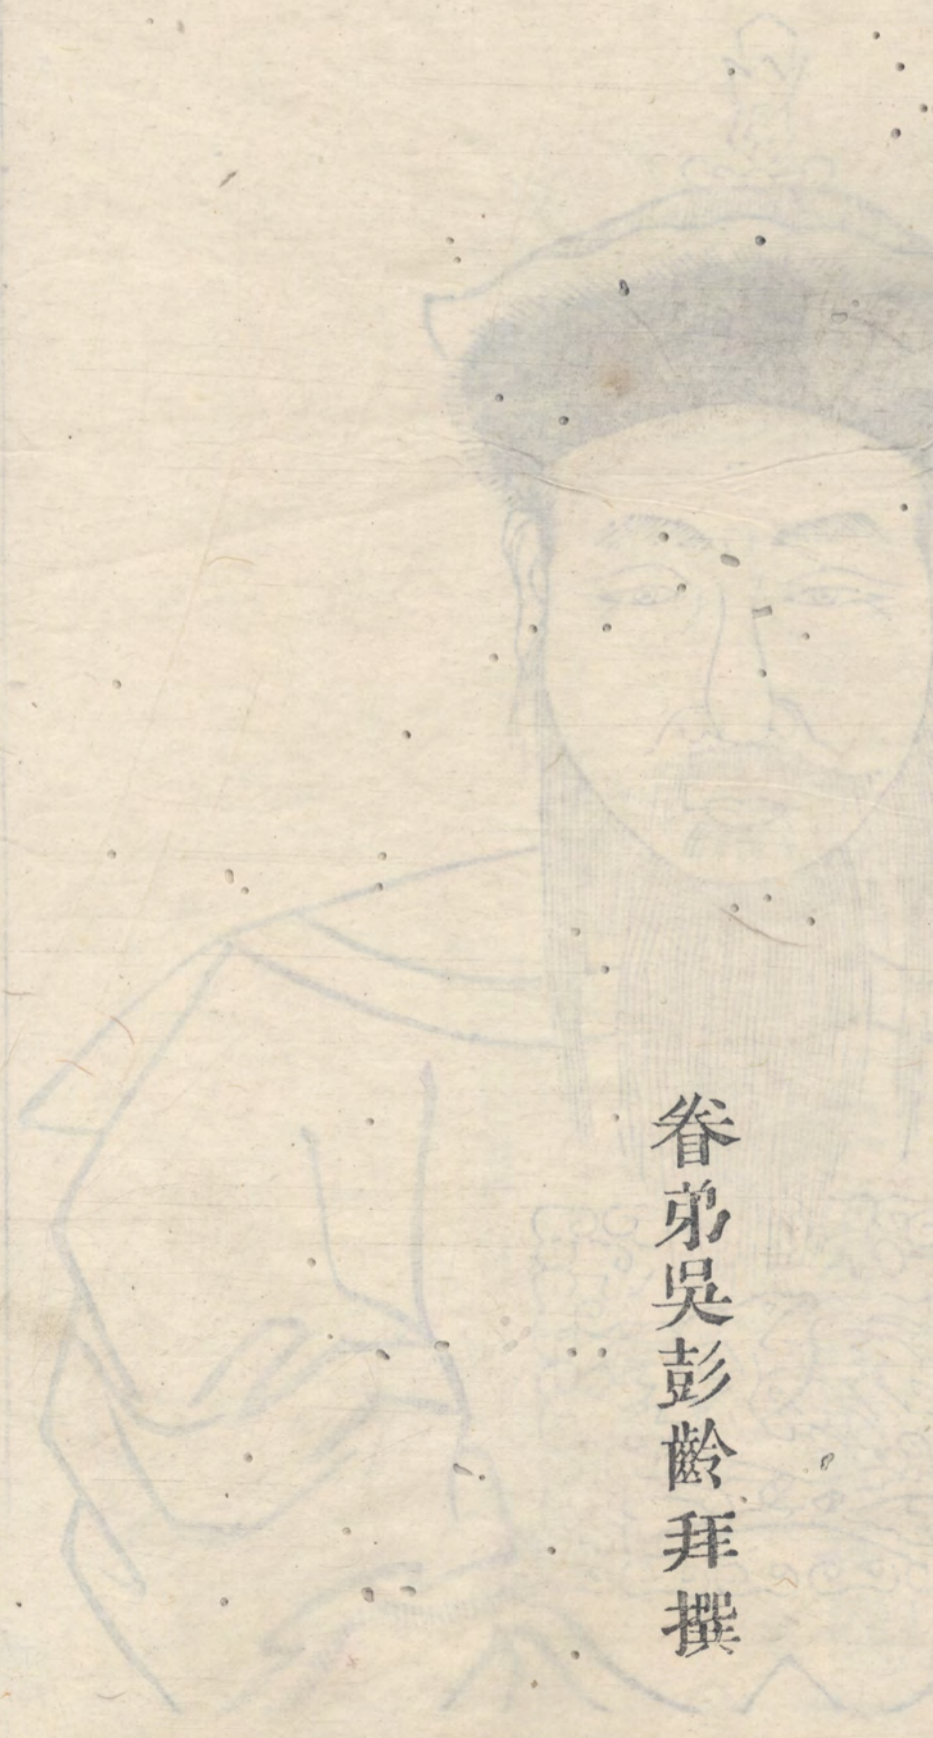 眷弟吳彭齡拜撰